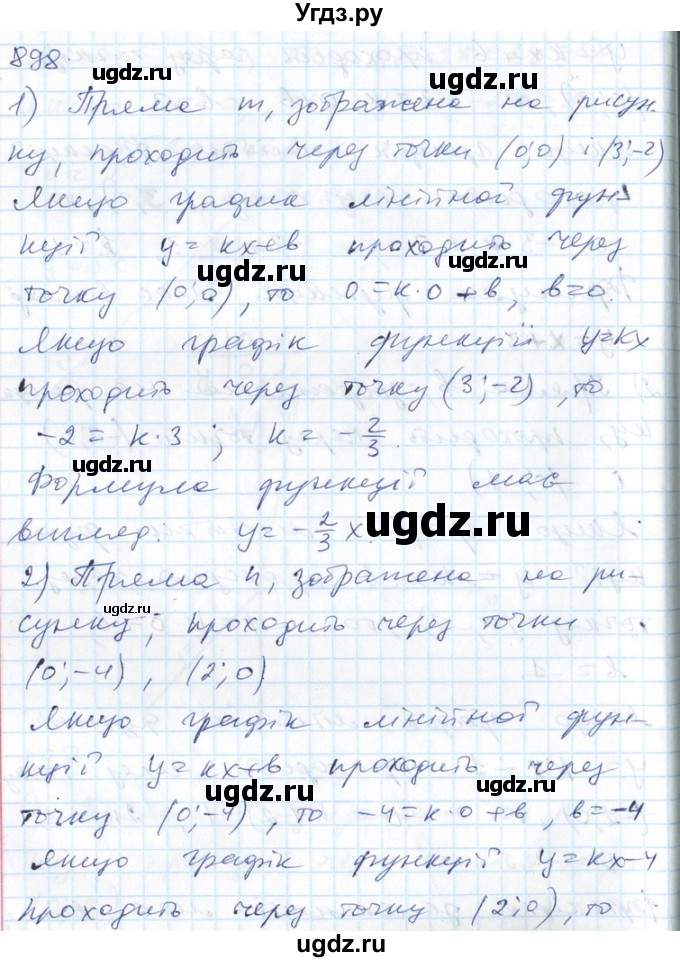 Угдз.ру
898.
1) Пряма m, зображена на рисун-
ку, проходить через точки (0;0) і (3;-2)
Якщо графік лінійної фун-
кції y = kx+b проходить через
точку (0;0), то 0 = k·0 + b, b=0.
Якщо графік функції y=kx
проходить через точку (3;-2), то
-2 = k·3 ; k = -2/3.
Формула функції має
вигляд: y = -2/3 x.
2) Пряма n, зображена на ри-
сунку, проходить через точки
(0;-4), (2;0)
Якщо графік лінійної фун-
кції y = kx+b проходить через
точку (0;-4), то -4 = k·0 + b, b = -4
Якщо графік функції y = kx-4
проходить через точку (2;0), то
ugdz.ru
ugdz.ru
ugdz.ru
ugdz.ru
ugdz.ru
ugdz.ru
ugdz.ru
ugdz.ru
ugdz.ru
ugdz.ru
ugdz.ru
ugdz.ru
ugdz.ru